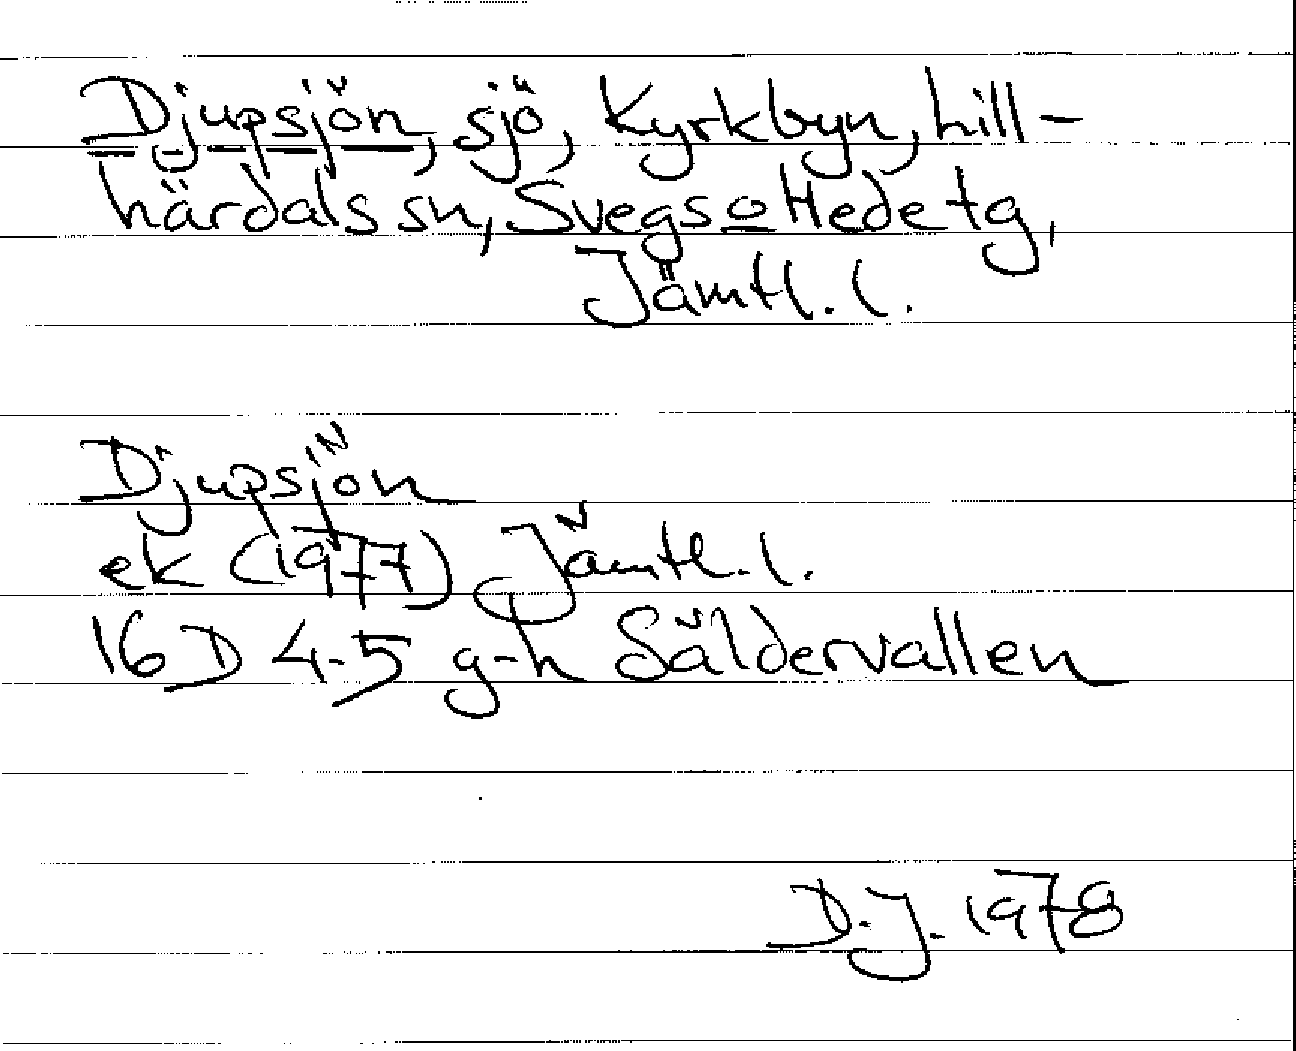 Djupsjön, sjö, Kyrkbyn, Lill-
härdals sn, Svegs o Hede tg,
Jämtl. l.
Djupsjön
ek (1977) Jämtl. l.
16 D 4-5 g-h Säldervallen
D.J. 1978